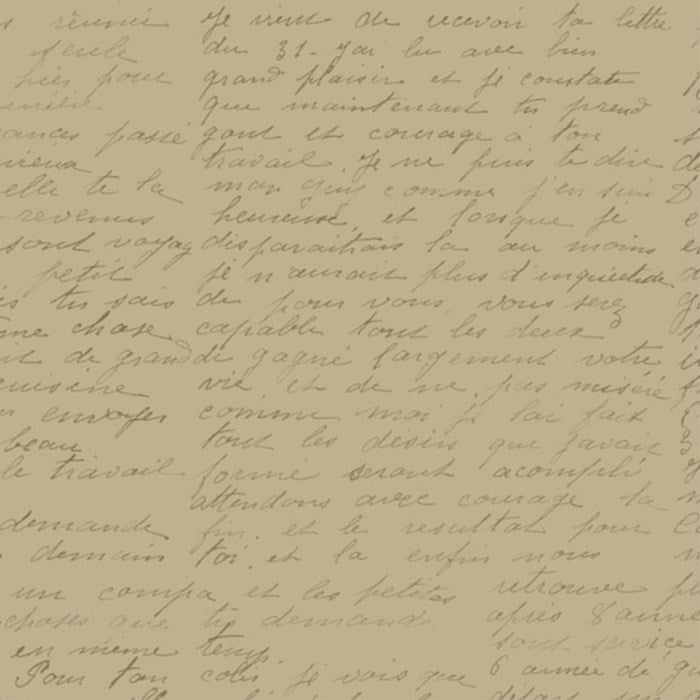 s réunie
seule
hier pour
ances passé
vieux
elle te la
revenus
sont voyag
petit
is tu sais
me chose
nt de grand
cuisine
envoyer
beau
le travail
demande
demain
un compa et les petites
choses que tu demande
en meme temp.
Pour ton colis, je vois que
Je vient de recevoir ta lettre
du 31- J'ai lu avec bien
grand plaisir et je constate
que maintenant tu prend
gout et courage à ton
travail. Je ne puis te dire
mon comme j'en suis
heureuse, et lorsque je
disparaitrais la au moins
je n'aurait plus d'inquietude
de pour vous vous serez
capable tout les deux
de gagné largement votre
vie et de ne pas miséré
comme moi je l'ai fait
tout les désirs que j'avais
formé seront acompli
attendons avec courage la
fin. et le resultat pour
toi. et la enfin nous
retrouve
après 8 anne
sont service
6 année de